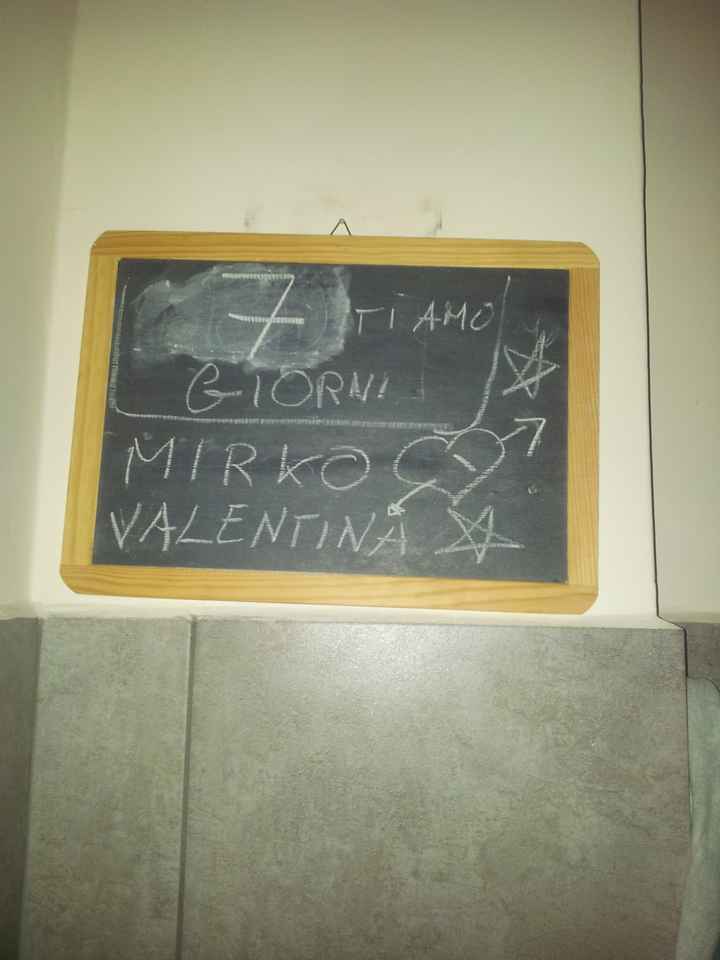 7 TI AMO
GIORNI
MIRKO
VALENTINA